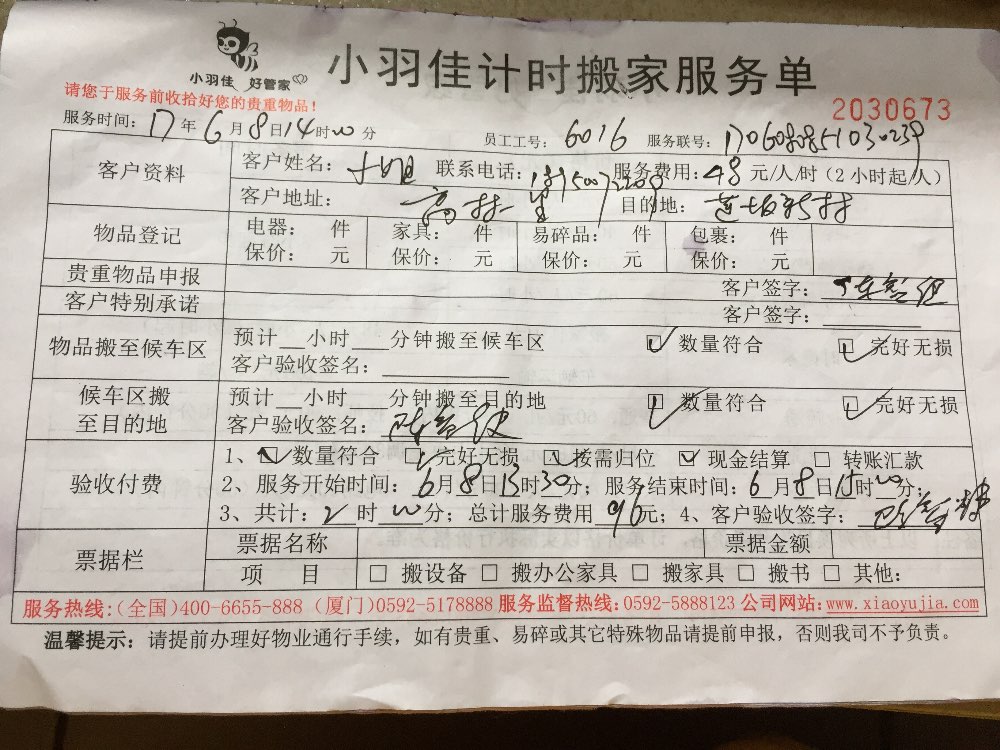 小羽佳 好管家
小羽佳计时搬家服务单
请您于服务前收拾好您的贵重物品！
2030673
服务时间：17年6月8日14时00分 员工工号：6016 服务联号：
客户资料 客户姓名：小姐 联系电话： 服务费用：48元/人/时（2小时起/人）
客户地址：高林 里 目的地：莲坂新村
物品登记 电器： 件 家具： 件 易碎品： 件 包裹： 件
保价： 元 保价： 元 保价： 元 保价： 元
贵重物品申报 客户签字：
客户特别承诺 客户签字：
物品搬至候车区 预计__小时___分钟搬至候车区 ☑ 数量符合 ☑ 完好无损
客户验收签名：
候车区搬至目的地 预计__小时___分钟搬至目的地 ☑ 数量符合 ☑ 完好无损
客户验收签名：
验收付费 1、☑ 数量符合 ☑ 完好无损 ☑ 按需归位 ☑ 现金结算 □ 转账汇款
2、服务开始时间：6月8日13时30分；服务结束时间：6月8日15时00分；
3、共计：2时00分；总计服务费用96元；4、客户验收签字：
票据栏 票据名称 票据金额
项 目 □ 搬设备 □ 搬办公家具 □ 搬家具 □ 搬书 □ 其他：
服务热线：（全国）400-6655-888（厦门）0592-5178888 服务监督热线：0592-5888123 公司网站：www.xiaoyujia.com
温馨提示：请提前办理好物业通行手续，如有贵重、易碎或其它特殊物品请提前申报，否则我司不予负责。